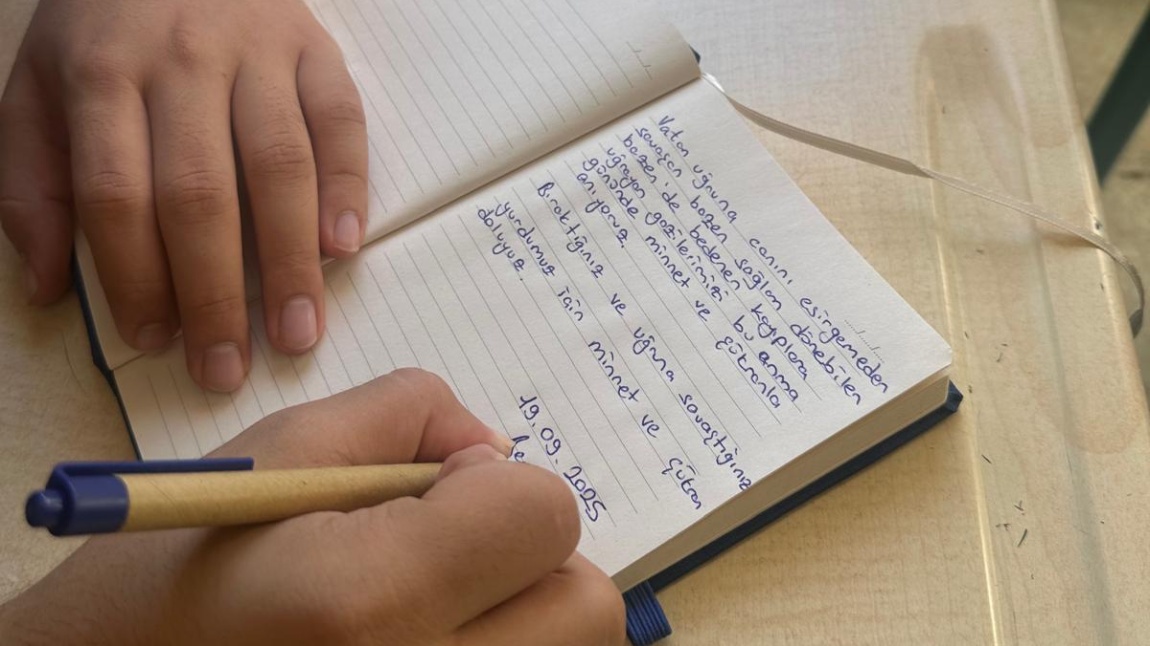 Vatan uğruna canını esirgemeden
savaşan bazen sağlam dönebilen
bazen'de bedenen kayplara
uğrayan gazilerimizi bu anma
gününde minnet ve şükranla
anıyoruz.
Bıraktığınız ve uğruna savaştığınız
yurdumuz için minnet ve şükran
doluyuz.
19.09.2025